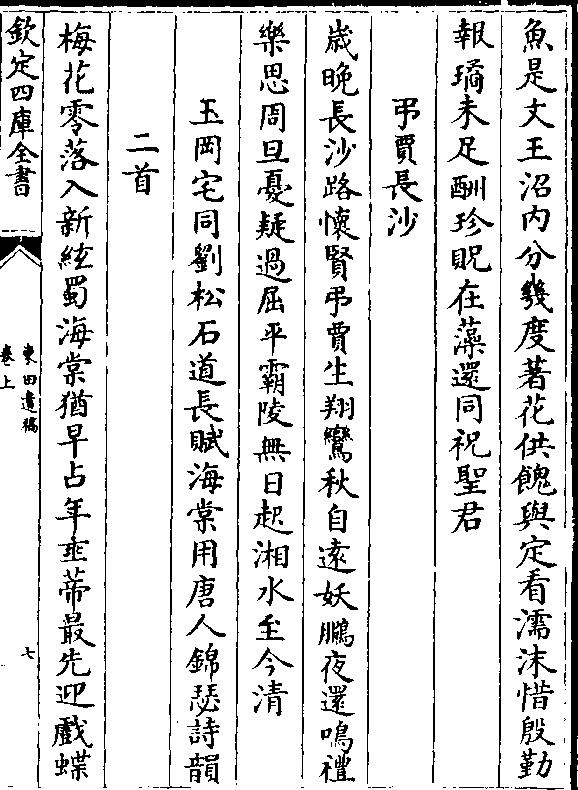 魚是文王沼内分幾度著花供餽與定看濡沫惜殷勤
報璚未足酬珍貺在藻還同祝聖君
弔賈長沙
歲晚長沙路懷賢弔賈生翔鸞秋自遠妖鵩夜還鳴禮
樂思周旦憂疑過屈平霸陵無日起湘水至今清
玉岡宅同劉松石道長賦海棠用唐人錦瑟詩韻
二首
梅花零落入新絃蜀海棠猶早占年垂蒂最先迎戲蝶
欽定四庫全書
東田遺稿
卷上
七